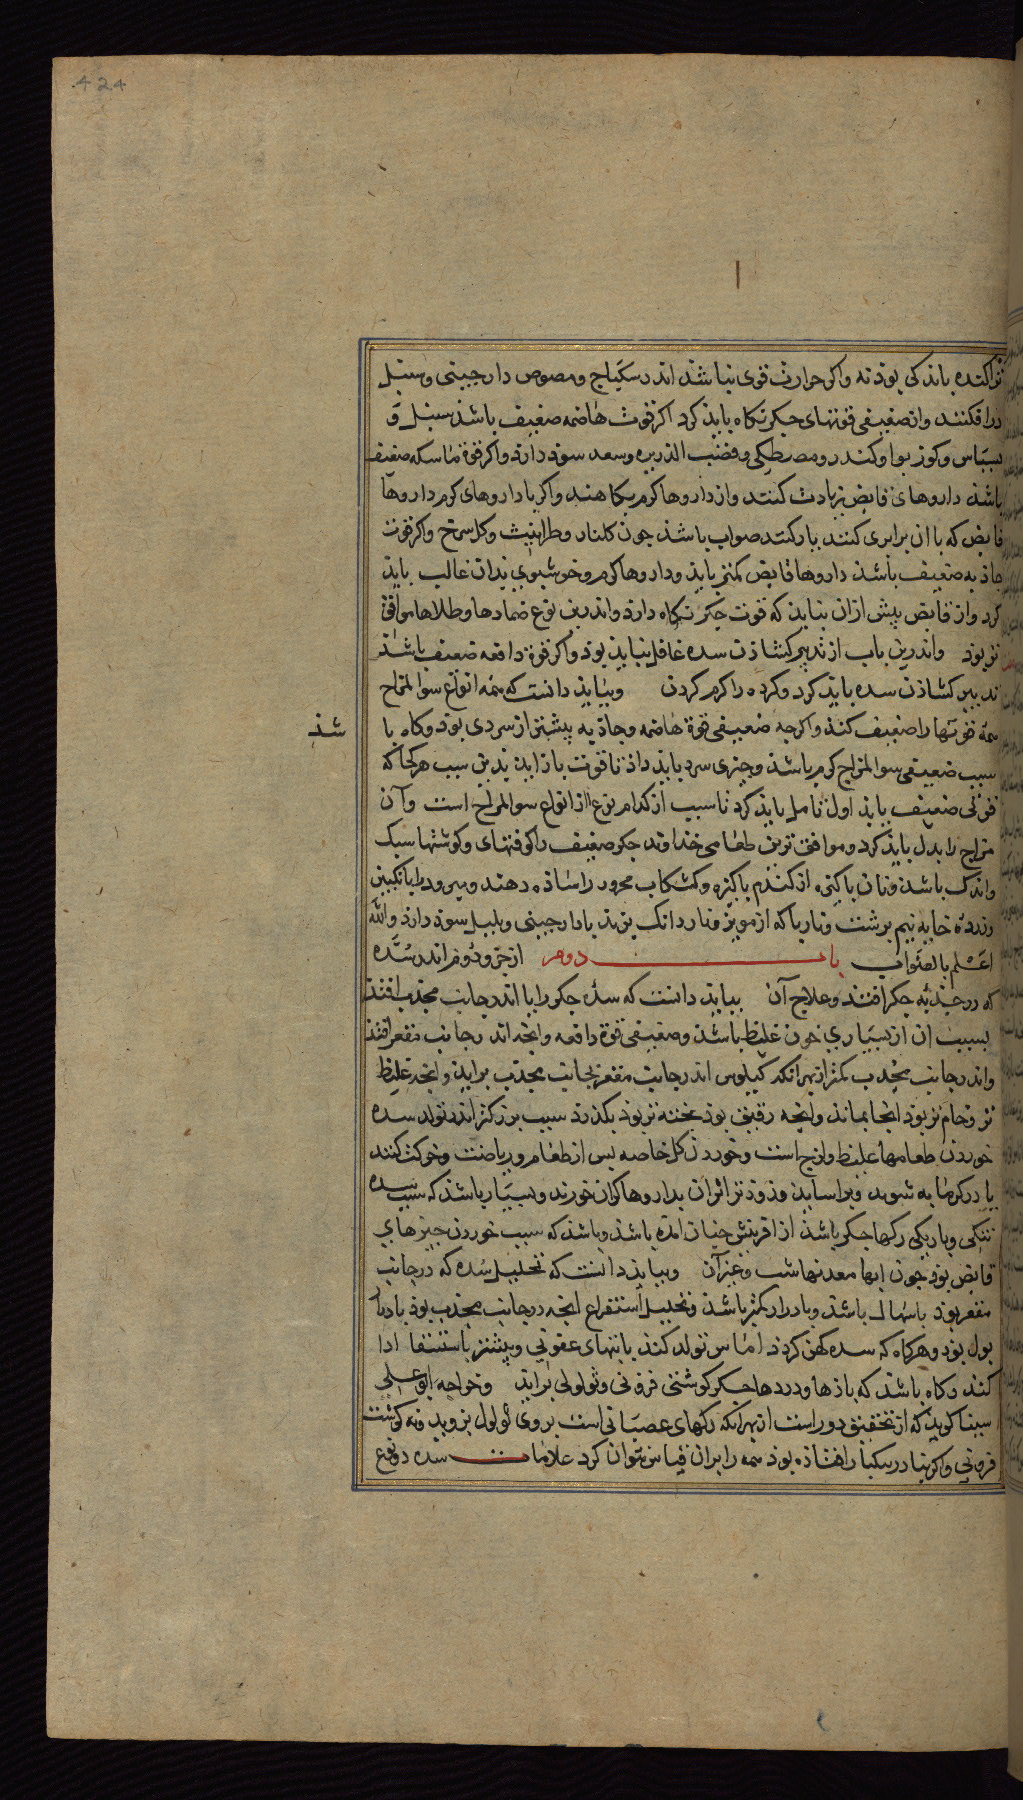 424
تر اکنده باندکی بوذنه واکر حرارت قوی نباشذ اندر سکباج ومصوص دارجینی وسنبل
درافکنند وازضعیفی قوتهای جکر نکاه بایذ کرد اکر قوت هاضمه ضعیف باشذ سنبل و
بسباس وکوز بوا وکندر ومصطکی وقصب الذریره وسعد سوذ دارذ واکر قوة ماسکه ضعیف
باشذ داروهای قابض زیادت کنند وازداروها کرم بکاهند واکر با داروهای کرم داروها
قابض که با ان برابری کند یار کنند صواب باشذ جون کلنار وطراثیث وکل سرخ واکر قوت
جاذبه ضعیف باشذ داروها قابض کمتر بایذ وداروها کرم وخوشبوی بذان غالب بایذ
کرد واز قابض بیش ازان نبایذ که قوت جکر نکاه دارذ واندرین نوع ضمادها وطلاها موافق
تر بوذ واندرین باب از تدبیر کشاذن سده غافل نبایذ بوذ واکر قوة دافعه ضعیف باشذ
تدبیر کشاذن سده بایذ کرد وکرده را کرم کردن وببایذ دانست که همه انواع سوالمزاج
همه قوتها را ضعیف کند واکرجه ضعیفی قوة هاضمه وجاذبه بیشتر از سردی بوذ وکاه با
شذ
سبب ضعیفی سوالمزاج کرم باشذ وجیزی سرد بایذ داذ تا قوت باز ایذ بذین سبب هرکجا که
قوتی ضعیف یابذ اول تامل بایذ کرد تا سبب از کدام نوع از انواع سوالمزاج است وآن
مزاج را بدل بایذ کرد وموافق ترین طعامی خذاوند جکر ضعیف را کوفتهای وکوشتها سبک
واندک باشذ ونان باکیزه از کندم باکیزه وکشکاب محرور را ساذه دهند ومبرود را با نکبین
وزرده خایه نیم برشت ونارباکه ازمویز وناردانک بزند با دارجینی وبلبل سوذ دارذ والله
اعلم بالصواب باب دوم ازجزو دوم اندر سده
که درجذبه جکر افتد وعلاج آن ببایذ دانست که سده جکر را یا اندر جانب محدب افتد
بسبب ان از بسیاری خون غلیظ باشذ وضعیفی قوة دافعه وانجه اندر جانب مقعر افتد
واندر جانب محدب کمتر ازبهرانکه کیلوس اندر جانب مقعر بجانب محدب برایذ وانجه غلیظ
تر وخام تر بوذ انجا بماند وانجه رقیق بوذ بخته تر بوذ بکذرد سبب بزرکتر اندر تولد سده
خوردن طعامها غلیظ ولزج است وخوردن کل خاصه بس از طعام وریاضت وحرکت کنند
یا در کرمابه شوند وبراساید وزوذ تر اثر ان بداروها کران خورند وبسیار باشذ که سبب سده
تنکی وباریکی رکها جکر باشذ از افرینش جنان امده باشذ وباشذ که سبب خوردن جیزهای
قابض بوذ جون ابها معدنها شب وغیر آن وببایذ دانست که تحلیل سده که در جانب
مقعر بوذ باسهال باشذ وبادرار کمتر باشذ وتحلیل استفراغ انجه درجانب محدب بوذ بادرار
بول بوذ وهرکاه که سده کهن کردذ اماس تولد کند یا تبهای عفونی وبیشتر باستسقا ادا
کند وکاه باشذ که باذها ودردها جکر کوشتی فزونی وثولولی برایذ وخواجه ابو علی
سینا کویذ که ازتحقیق دور است ازبهرانکه رکهای عصبانی است بروی ثولول نرویذ ونه کوشت
فزونی واکر بنادر یکبار افتاذه بوذ همه را بران قیاس نتوان کرد علامات سده دونوع